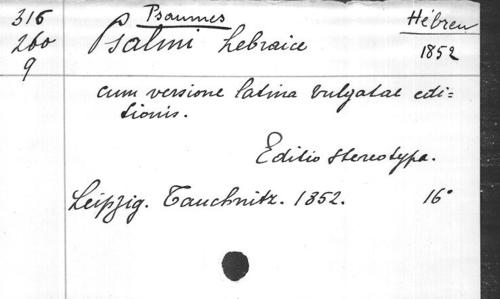 316
260
9
Psaumes
Hébreu
Psalmi hebraice
1852
cum versione latina vulgatae edi=
tionis.
Editio stereotypa.
Leipzig. Tauchnitz. 1852. 16°